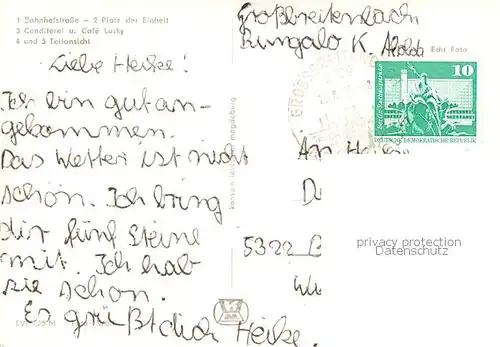 1 Bahnhofstraße – 2 Platz der Einheit
3 Conditorei u. Café Lusky
4 und 5 Teilansicht
Großbreitenbach
Bungalo K.
Echt Foto
Liebe Heike!
Ich bin gut an-
gekommen.
Das Wetter ist nicht
schön. Ich bring
dir fünf Steine
mit. Ich hab
sie schon.
Es grüßt dich Heike.
konsum
magdeburg
10
DEUTSCHE DEMOKRATISCHE REPUBLIK
An
5322
privacy protection
Datenschutz